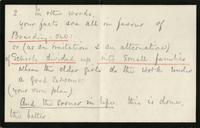 2 In other words,
your facts are all in favour of
Boarding-out:
or (as an imitation & an alternative)
of Schools divided up into small families
where the older girls do the work under
a good
(your own plan).
And the sooner in life this is done,
the better.